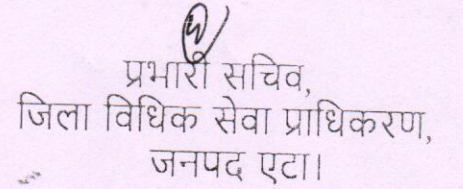 प्रभारी सचिव,
जिला विधिक सेवा प्राधिकरण,
जनपद एटा।